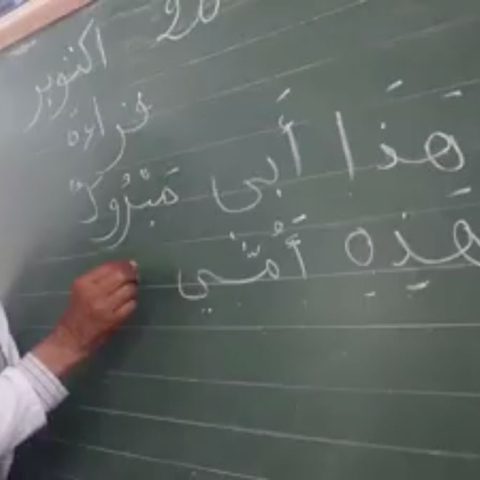 20 أكتوبر
قراءة
هَذَا أَبِي مَبْرُوكٌ
هَذِهِ أُمِّي